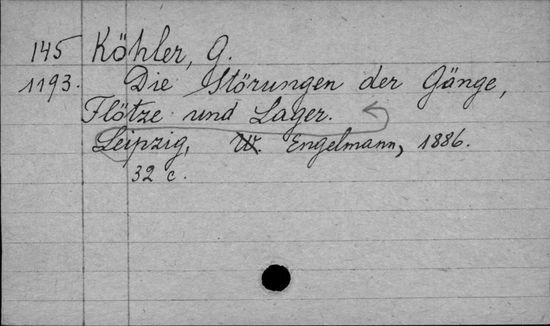 145 Köhler, G.
1193. Die Störungen der Gänge,
Flötze und Lager.
Leipzig, W. Engelmann, 1886.
32 c.